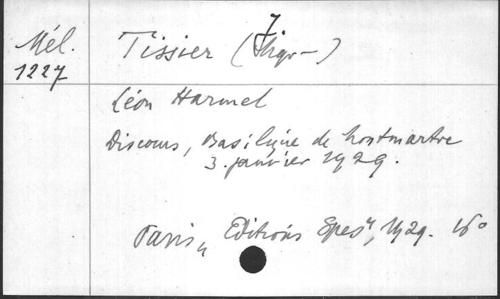 Mél.
1227
7
Tissier (Mgr–)
Léon Harmel
Discours, Basilique de Montmartre
3. janvier 1929.
Paris, Editions Spes, 1929. 16°